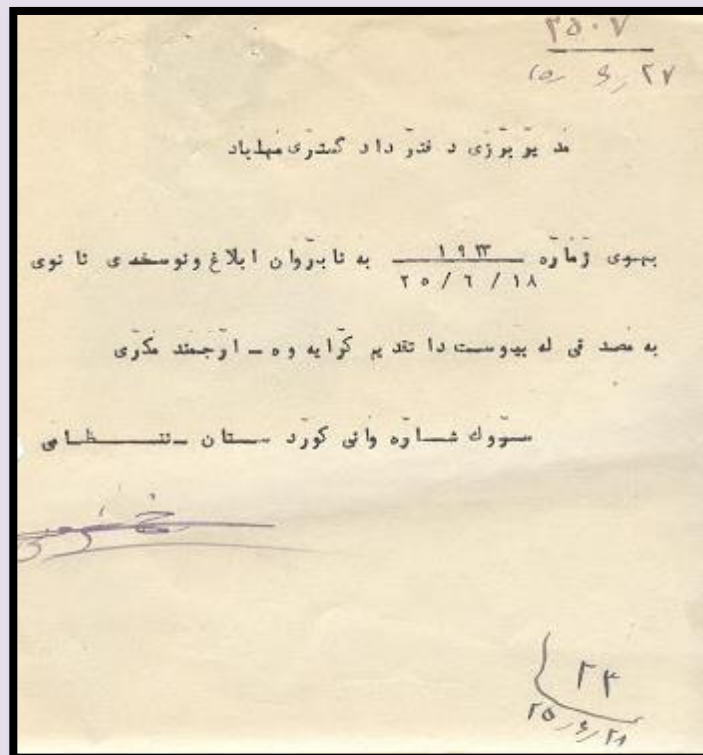 ٢٥٠٧
٢٥/٦/٢٧
مدیر بەرزی دفتر دادگستری مهاباد
بهوی ژمارە ١٩٣٣ به نابروان ابلاغ ونوسخەی ثانوی
٢٥/٦/١٨
به مصدقی له پیوست دا تقدیم کرایه وه ــ ارجمند مکری
سەروك شارە وانی کوردستان ــ نظامی
٢٤
٢٥/٦/٢٨